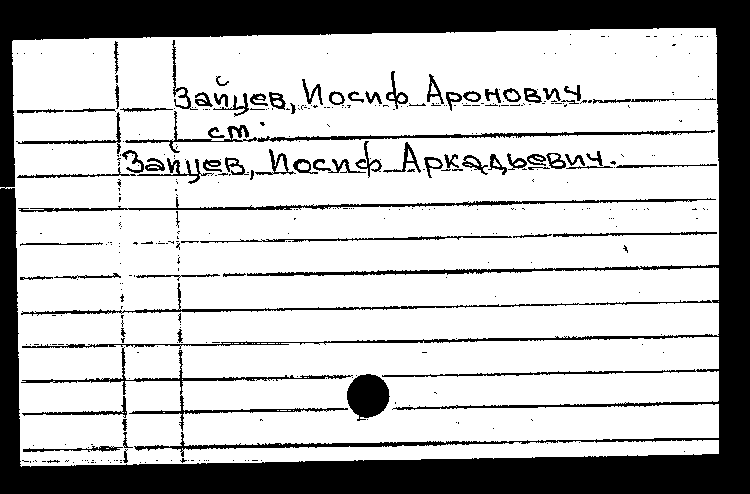 Зайцев, Иосиф Аронович
ст.
Зайцев, Иосиф Аркадьевич.